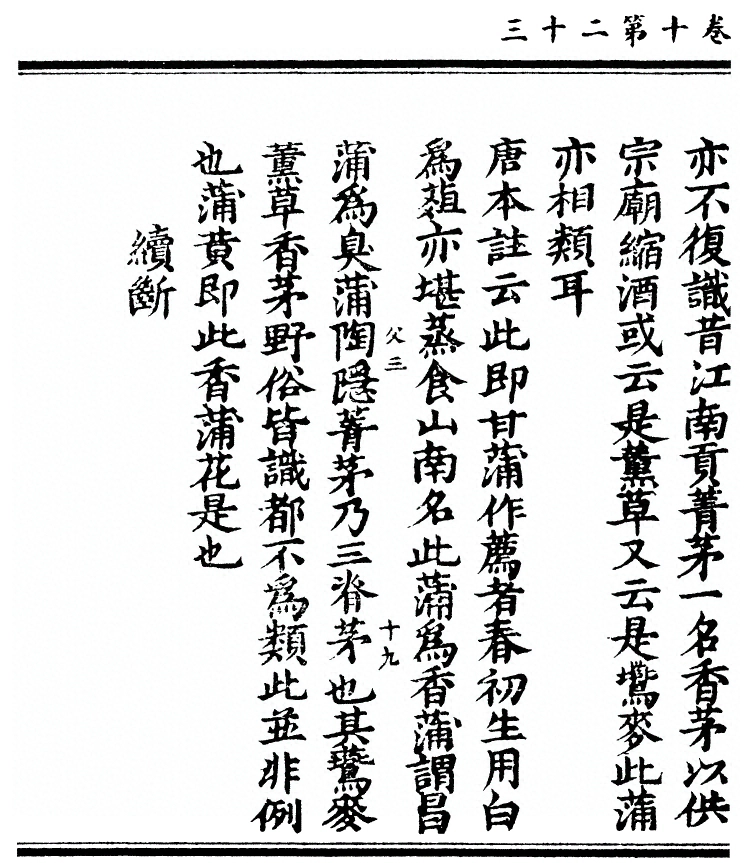 卷十第二十三
亦不復識昔江南貢菁茅一名香茅以供
宗廟縮酒或云是薰草又云是鷰麥此蒲
亦相類耳
唐本註云此即甘蒲作薦者春初生用白
爲葅亦堪蒸食山南名此蒲爲香蒲謂昌
父三
十九
蒲爲臭蒲陶隱菁茅乃三脊茅也其鷰麥
薰草香茅野俗皆識都不爲類此並非例
也蒲黃即此香蒲花是也
續斷